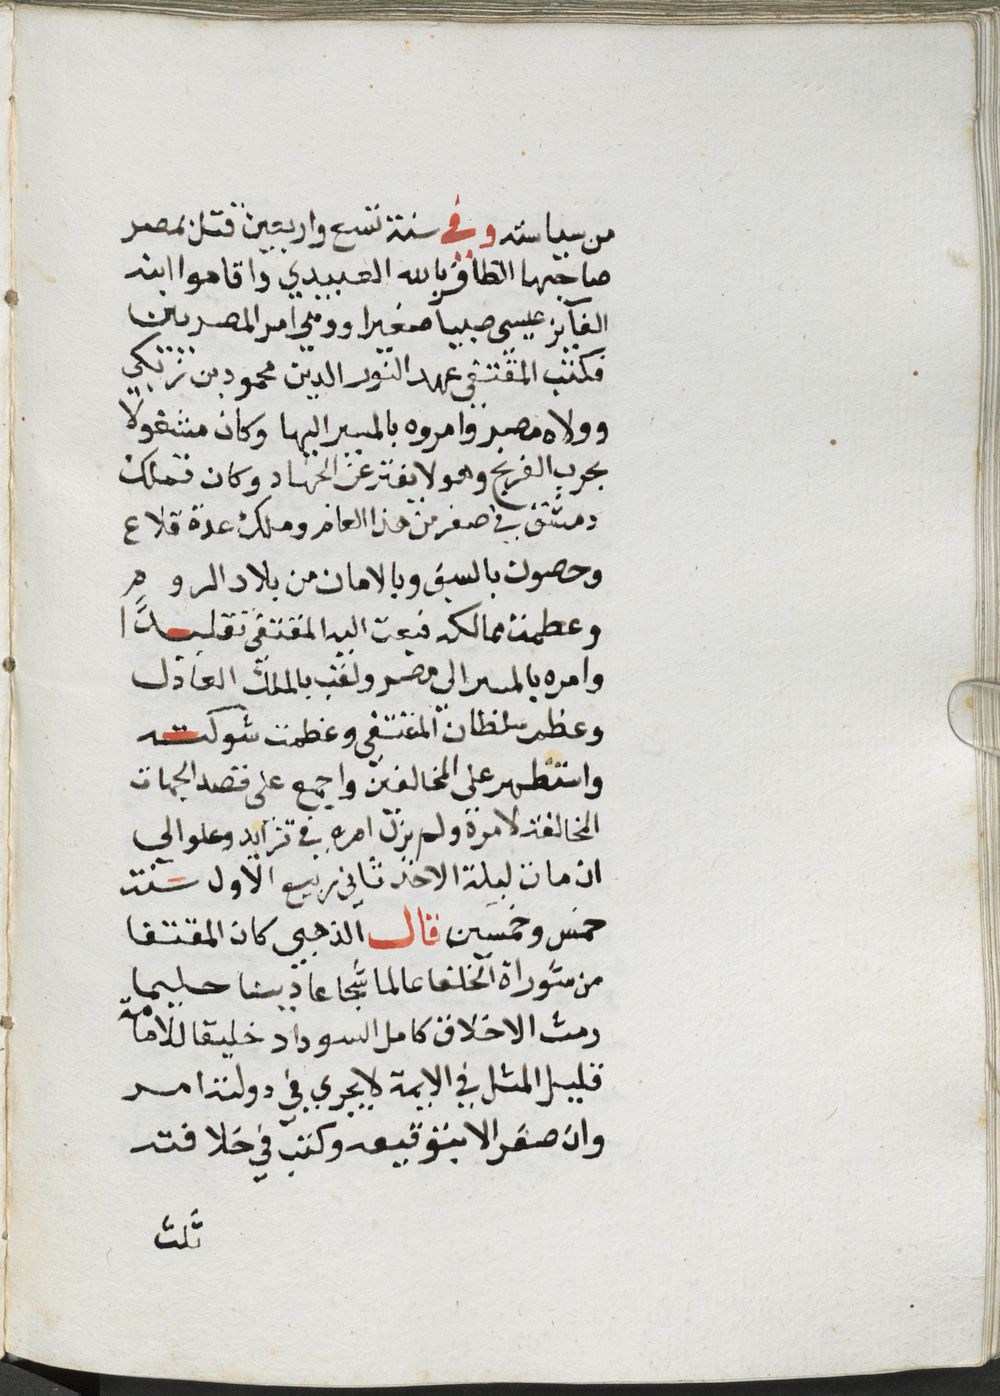 من سياسته وفي سنة تسع واربعين قتل بمصر
صاحبها الظافر بالله العبيدي واقاموا ابنه
الفآيز عيسى صبيا صغيرا ووهى امر المصريين
فكتب المقتفي عهد النور الدين محمود بن زنكي
وولاه مصر وامروه بالمسير اليها وكان مشغولا
بحرب الفرنج وهو لا يفتر عن الجهاد وكان تملك
دمشق في صفر من هذا العام وملك عدة قلاع
وحصون بالسيف وبالامان من بلاد الروم
وعظمت ممالكه فبعث اليه المقتفي تقليدا
وامره بالمسير الى مصر ولقب بالملك العادل
وعظم سلطان المقتفي وعظمت شوكته
واستظهر على المخالفين واجمع على قصد الجهات
المخالفة لامرة ولم يزل امره في تزايد وعلو الي
ان مات ليلة الاحد ثاني ربيع الاول سنة
خمس وخمسين قال الذهبي كان المقتفا
من سوراة الخلفا عالما شجاعا دينا حليما
دمث الاخلاق كامل السوداد خليقا للامامة
قليل المثل في الايمة لا يجري في دولته امر
وان صغر الا بتوقيعه وكتب في خلافته
ثلث